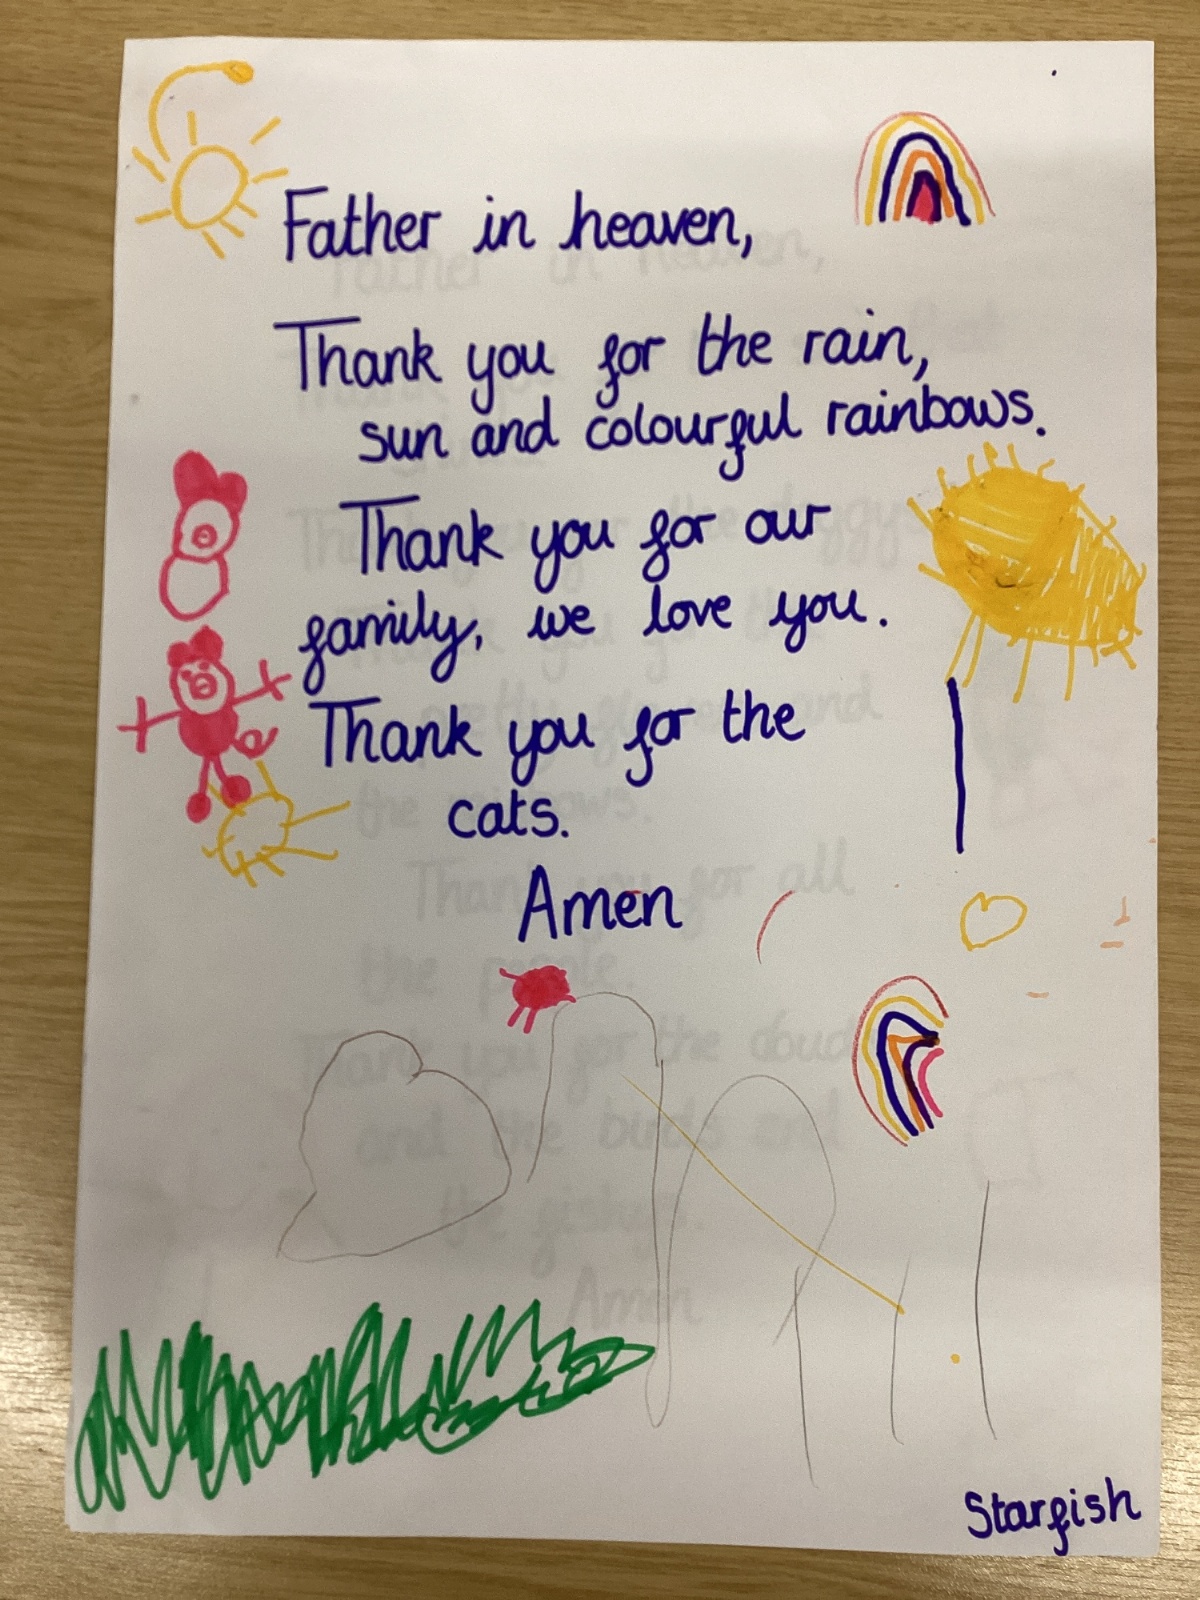 Father in heaven,
Thank you for the rain,
sun and colourful rainbows.
Thank you for our
family, we love you.
Thank you for the
cats.
Amen
Starfish